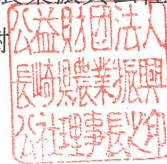 公益財団法人
長崎県農業振興
公社理事長之印